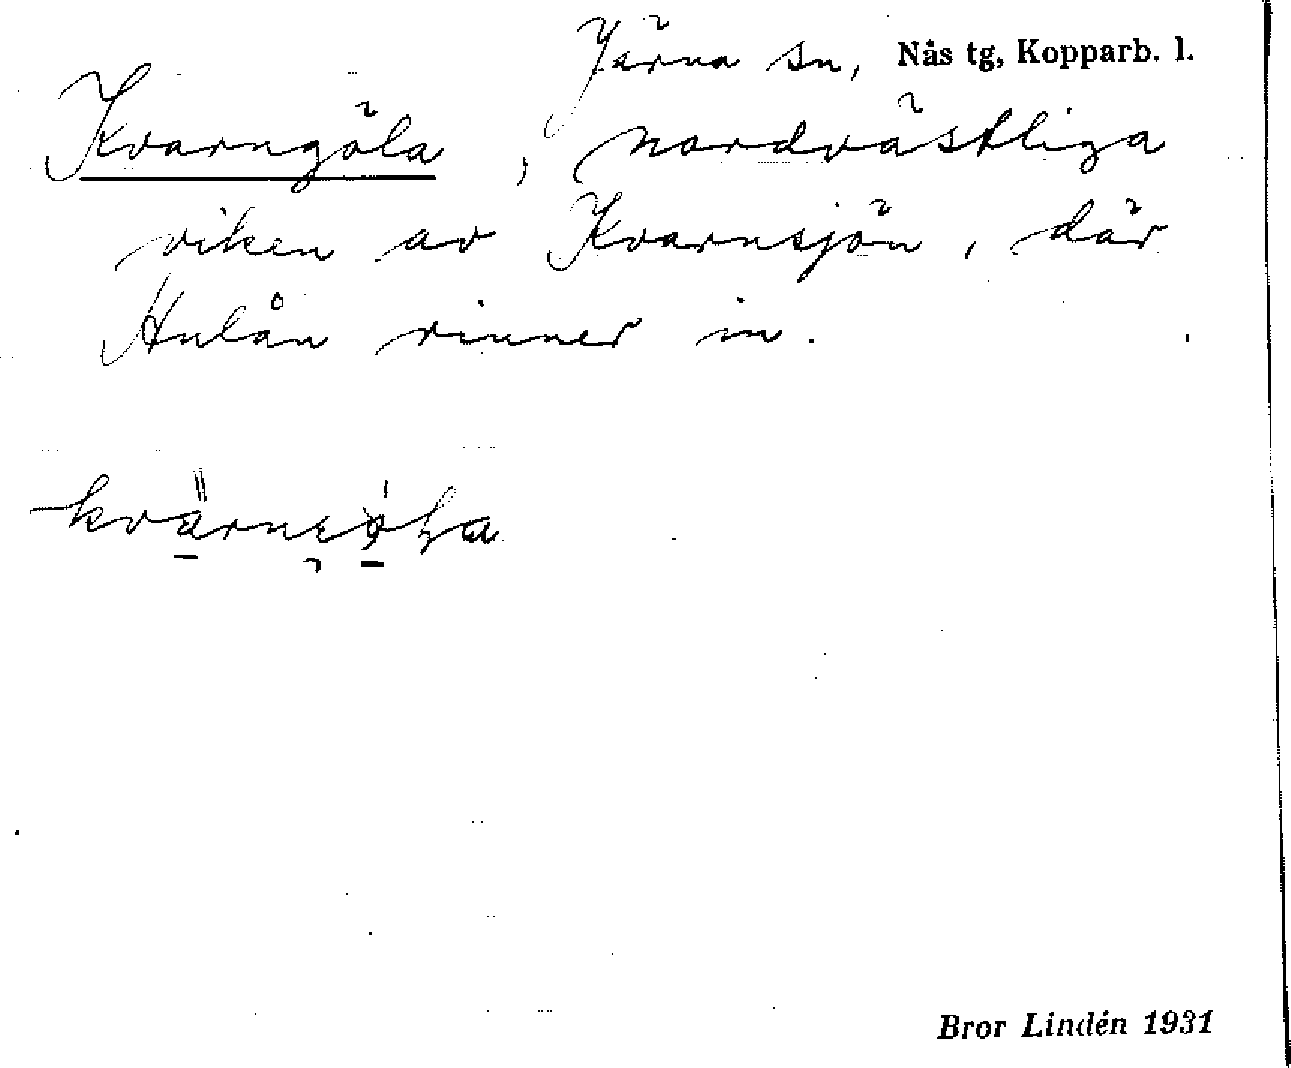 Järna sn, Nås tg, Kopparb. l.
Kvarngöla, nordvästliga
viken av Kvarnsjön, där
Hulån rinner in.
Bror Lindén 1931